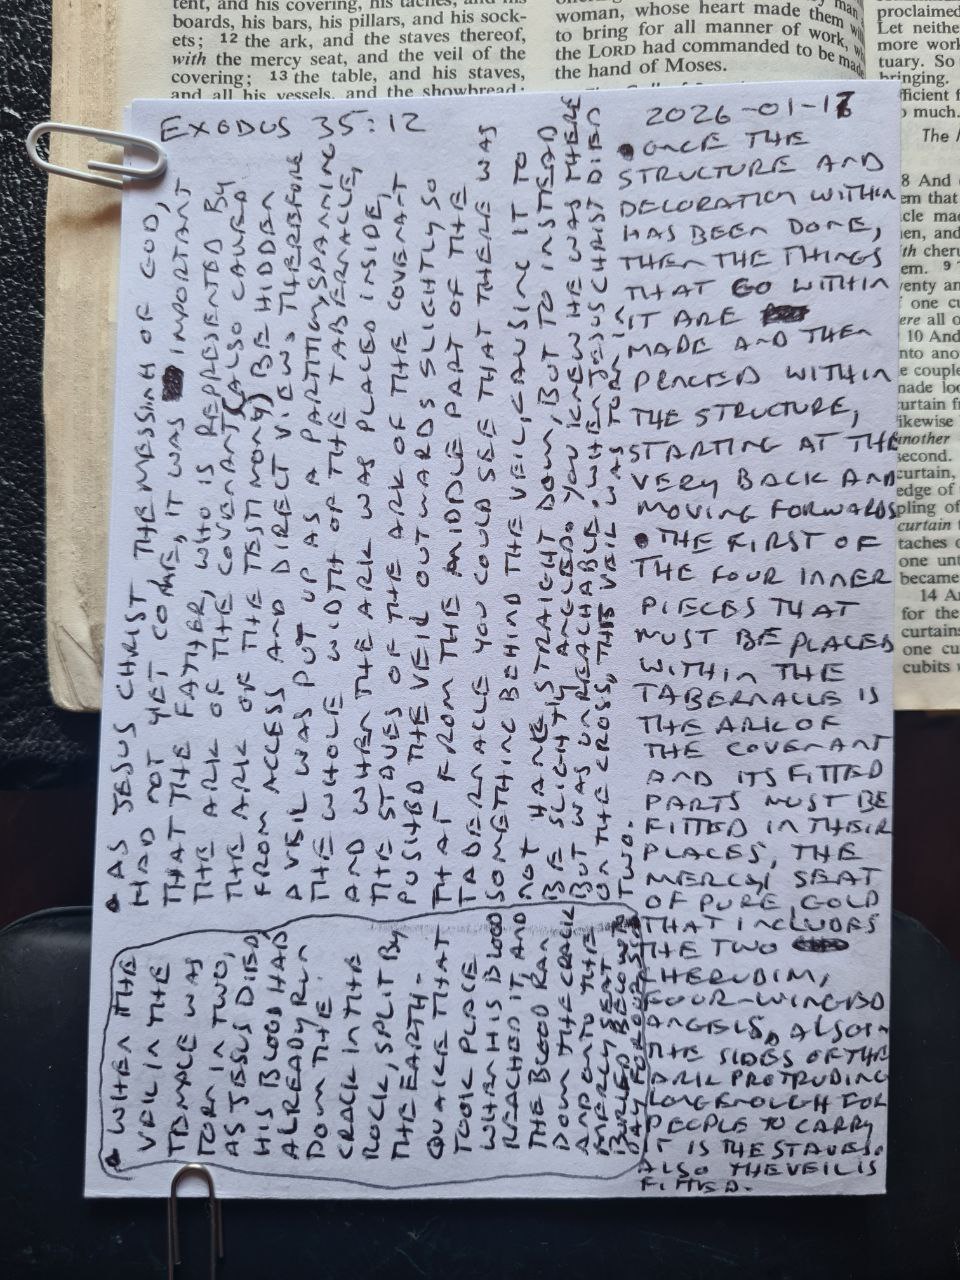 tent, and his covering, his taches, and his
boards, his bars, his pillars, and his sock-
ets; 12 the ark, and the staves thereof,
with the mercy seat, and the veil of the
covering; 13 the table, and his staves,
and all his vessels, and the showbread;
woman, whose heart made them
to bring for all manner of work,
the LORD had commanded to be made
the hand of Moses.
proclaimed
Let neithe
more work
tuary. So
bringing.
fficient f
o much.
The
8 And
em that
cle mad
en, and
th cheru
em. 9
venty an
one cu
ere all o
10 And
nto ano
e couple
made loo
curtain fr
ikewise
another
second.
curtain,
edge of
pling of
curtain t
taches o
one unt
became
14 An
for the
curtains
one cu
cubits
EXODUS 35:12
2026-01-17
• ONCE THE
STRUCTURE AND
DECORATION WITHIN
HAS BEEN DONE,
THEN THE THINGS
THAT GO WITHIN
IT ARE
MADE AND THEN
PLACED WITHIN
THE STRUCTURE,
STARTING AT THE
VERY BACK AND
MOVING FORWARDS
• THE FIRST OF
THE FOUR INNER
PIECES THAT
MUST BE PLACED
WITHIN THE
TABERNACLE IS
THE ARK OF
THE COVENANT
AND ITS FITTED
PARTS MUST BE
FITTED IN THEIR
PLACES, THE
MERCY SEAT
OF PURE GOLD
THAT INCLUDES
THE TWO
CHERUBIM,
FOUR-WINGED
ANGELS, ALSO IN
THE SIDES OF THE
ARK PROTRUDING
LONG ENOUGH FOR
PEOPLE TO CARRY
IT IS THE STAVES.
ALSO THE VEIL IS
FITTED.
• AS JESUS CHRIST THE MESSIAH OF GOD,
HAD NOT YET COME, IT WAS IMPORTANT
THAT THE FATHER, WHO IS REPRESENTED BY
THE ARK OF THE COVENANT (ALSO CALLED
THE ARK OF THE TESTIMONY) BE HIDDEN
FROM ACCESS AND DIRECT VIEW. THEREFORE
A VEIL WAS PUT UP AS A PARTITION, SPANNING
THE WHOLE WIDTH OF THE TABERNACLE,
AND WHEN THE ARK WAS PLACED INSIDE,
THE STAVES OF THE ARK OF THE COVENANT
PUSHED THE VEIL OUTWARDS SLIGHTLY SO
THAT FROM THE MIDDLE PART OF THE
TABERNACLE YOU COULD SEE THAT THERE WAS
SOMETHING BEHIND THE VEIL, CAUSING IT TO
NOT HANG STRAIGHT DOWN, BUT TO INSTEAD
BE SLIGHTLY ANGLED. YOU KNEW HE WAS THERE
BUT WAS UNREACHABLE. WHEN JESUS CHRIST DIED
ON THE CROSS, THIS VEIL WAS TORN IN
TWO.
• WHEN THE
VEIL IN THE
TEMPLE WAS
TORN IN TWO,
AS JESUS DIED,
HIS BLOOD HAD
ALREADY RUN
DOWN THE
CRACK IN THE
ROCK, SPLIT BY
THE EARTH-
QUAKE THAT
TOOK PLACE
WHEN HIS BLOOD
REACHED IT, AND
THE BLOOD RAN
DOWN THE CRACK
AND ONTO THE
MERCY SEAT
BURIED BELOW